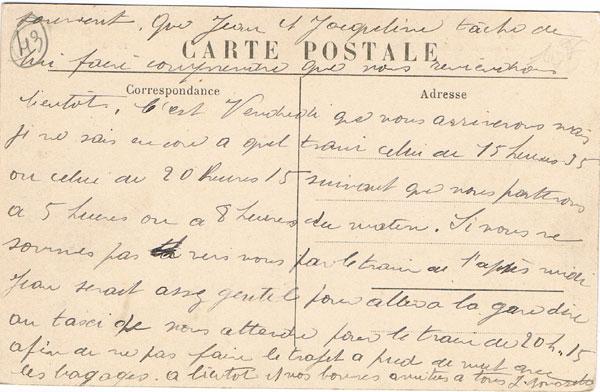 souvent. Que Jean et Jacqueline tâche de
43
CARTE POSTALE
lui faire comprendre que nous reviendrons
Correspondance
Adresse
bientôt. C'est Vendredi que nous arriverons mais
je ne sais encore a quel train celui de 15 heures 35
ou celui de 20 heures 15 suivant que nous partirons
a 5 heures ou a 8 heures du matin. Si nous ne
sommes pas vers vous par le train de l'après midi
Jean serait assez gentil pour aller a la gare dire
au taxi de nous attendre pour le train de 20h.15
afin de ne pas faire le trajet a pied de nuit avec
les bagages. a bientôt nos bonnes amitiés a tous